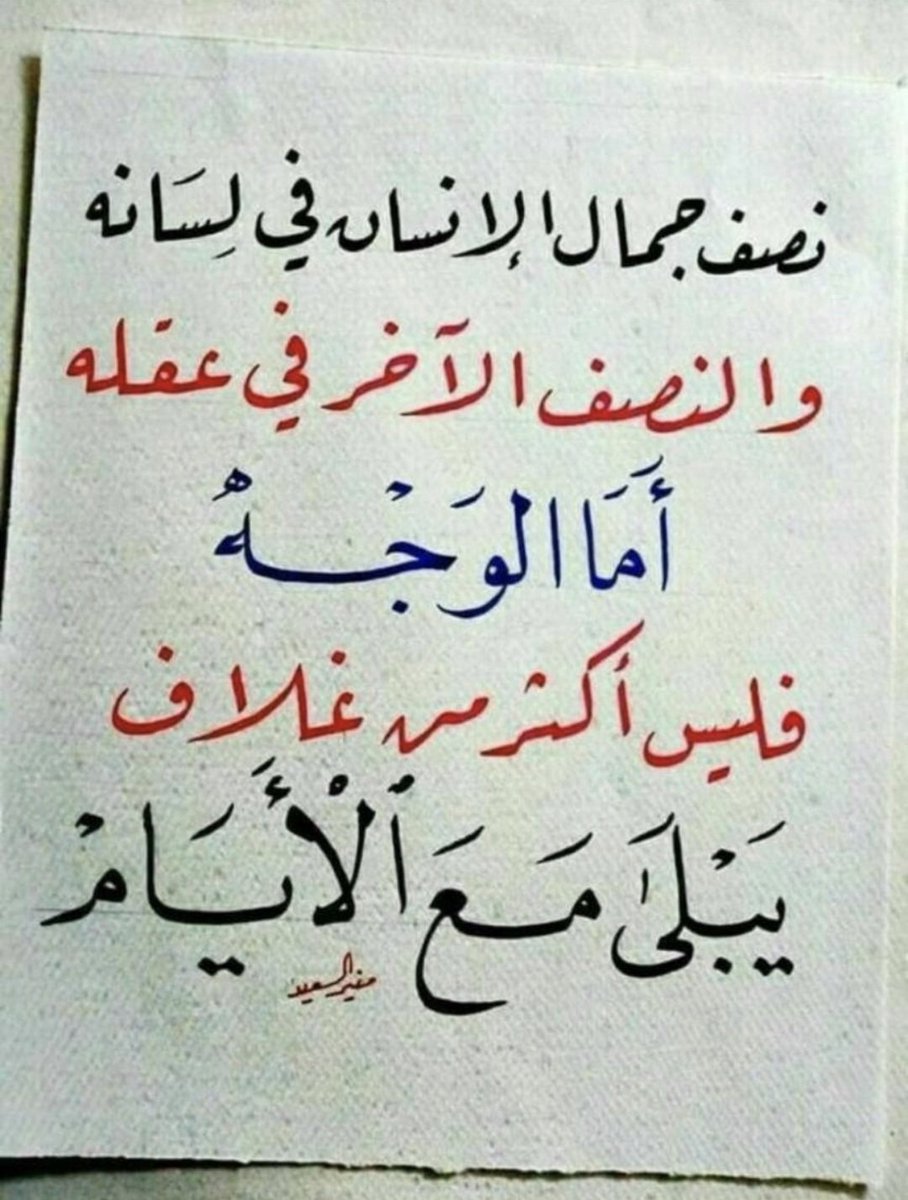 نصف جمال الإنسان في لِسَانه
والنصف الآخر في عقله
أَمَا الوَجْهُ
فليس أكثر من غلاف
يَبْلَىٰ مَعَ ٱلْأَيَامْ
السعيد